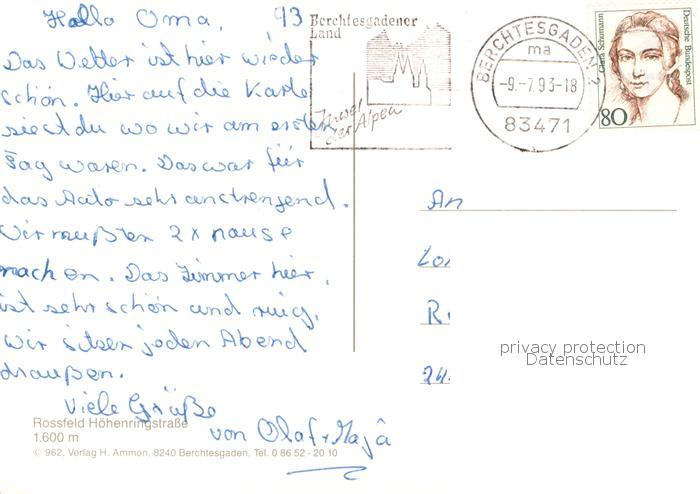 Hallo Oma, 93
Das Wetter ist hier wieder
schön. Hier auf die Karte
siest du wo wir am ersten
Tag waren. Das war für
das Auto sehr anstrengend.
Wir mußten 2x pause
machen. Das Zimmer hier,
ist sehr schön und ruig,
wir sitzen jeden Abend
draußen.
Viele Grüße
von Olaf + Maja
Rossfeld Höhenringstraße
1.600 m
© 962, Verlag H. Ammon, 8240 Berchtesgaden, Tel. 0 86 52 - 20 10
Berchtesgadener
Land
Juwel
der Alpen
BERCHTESGADEN 2
ma
-9.-7.93-18
83471
Clara Schumann
Deutsche Bundespost
80
An
privacy protection
Datenschutz